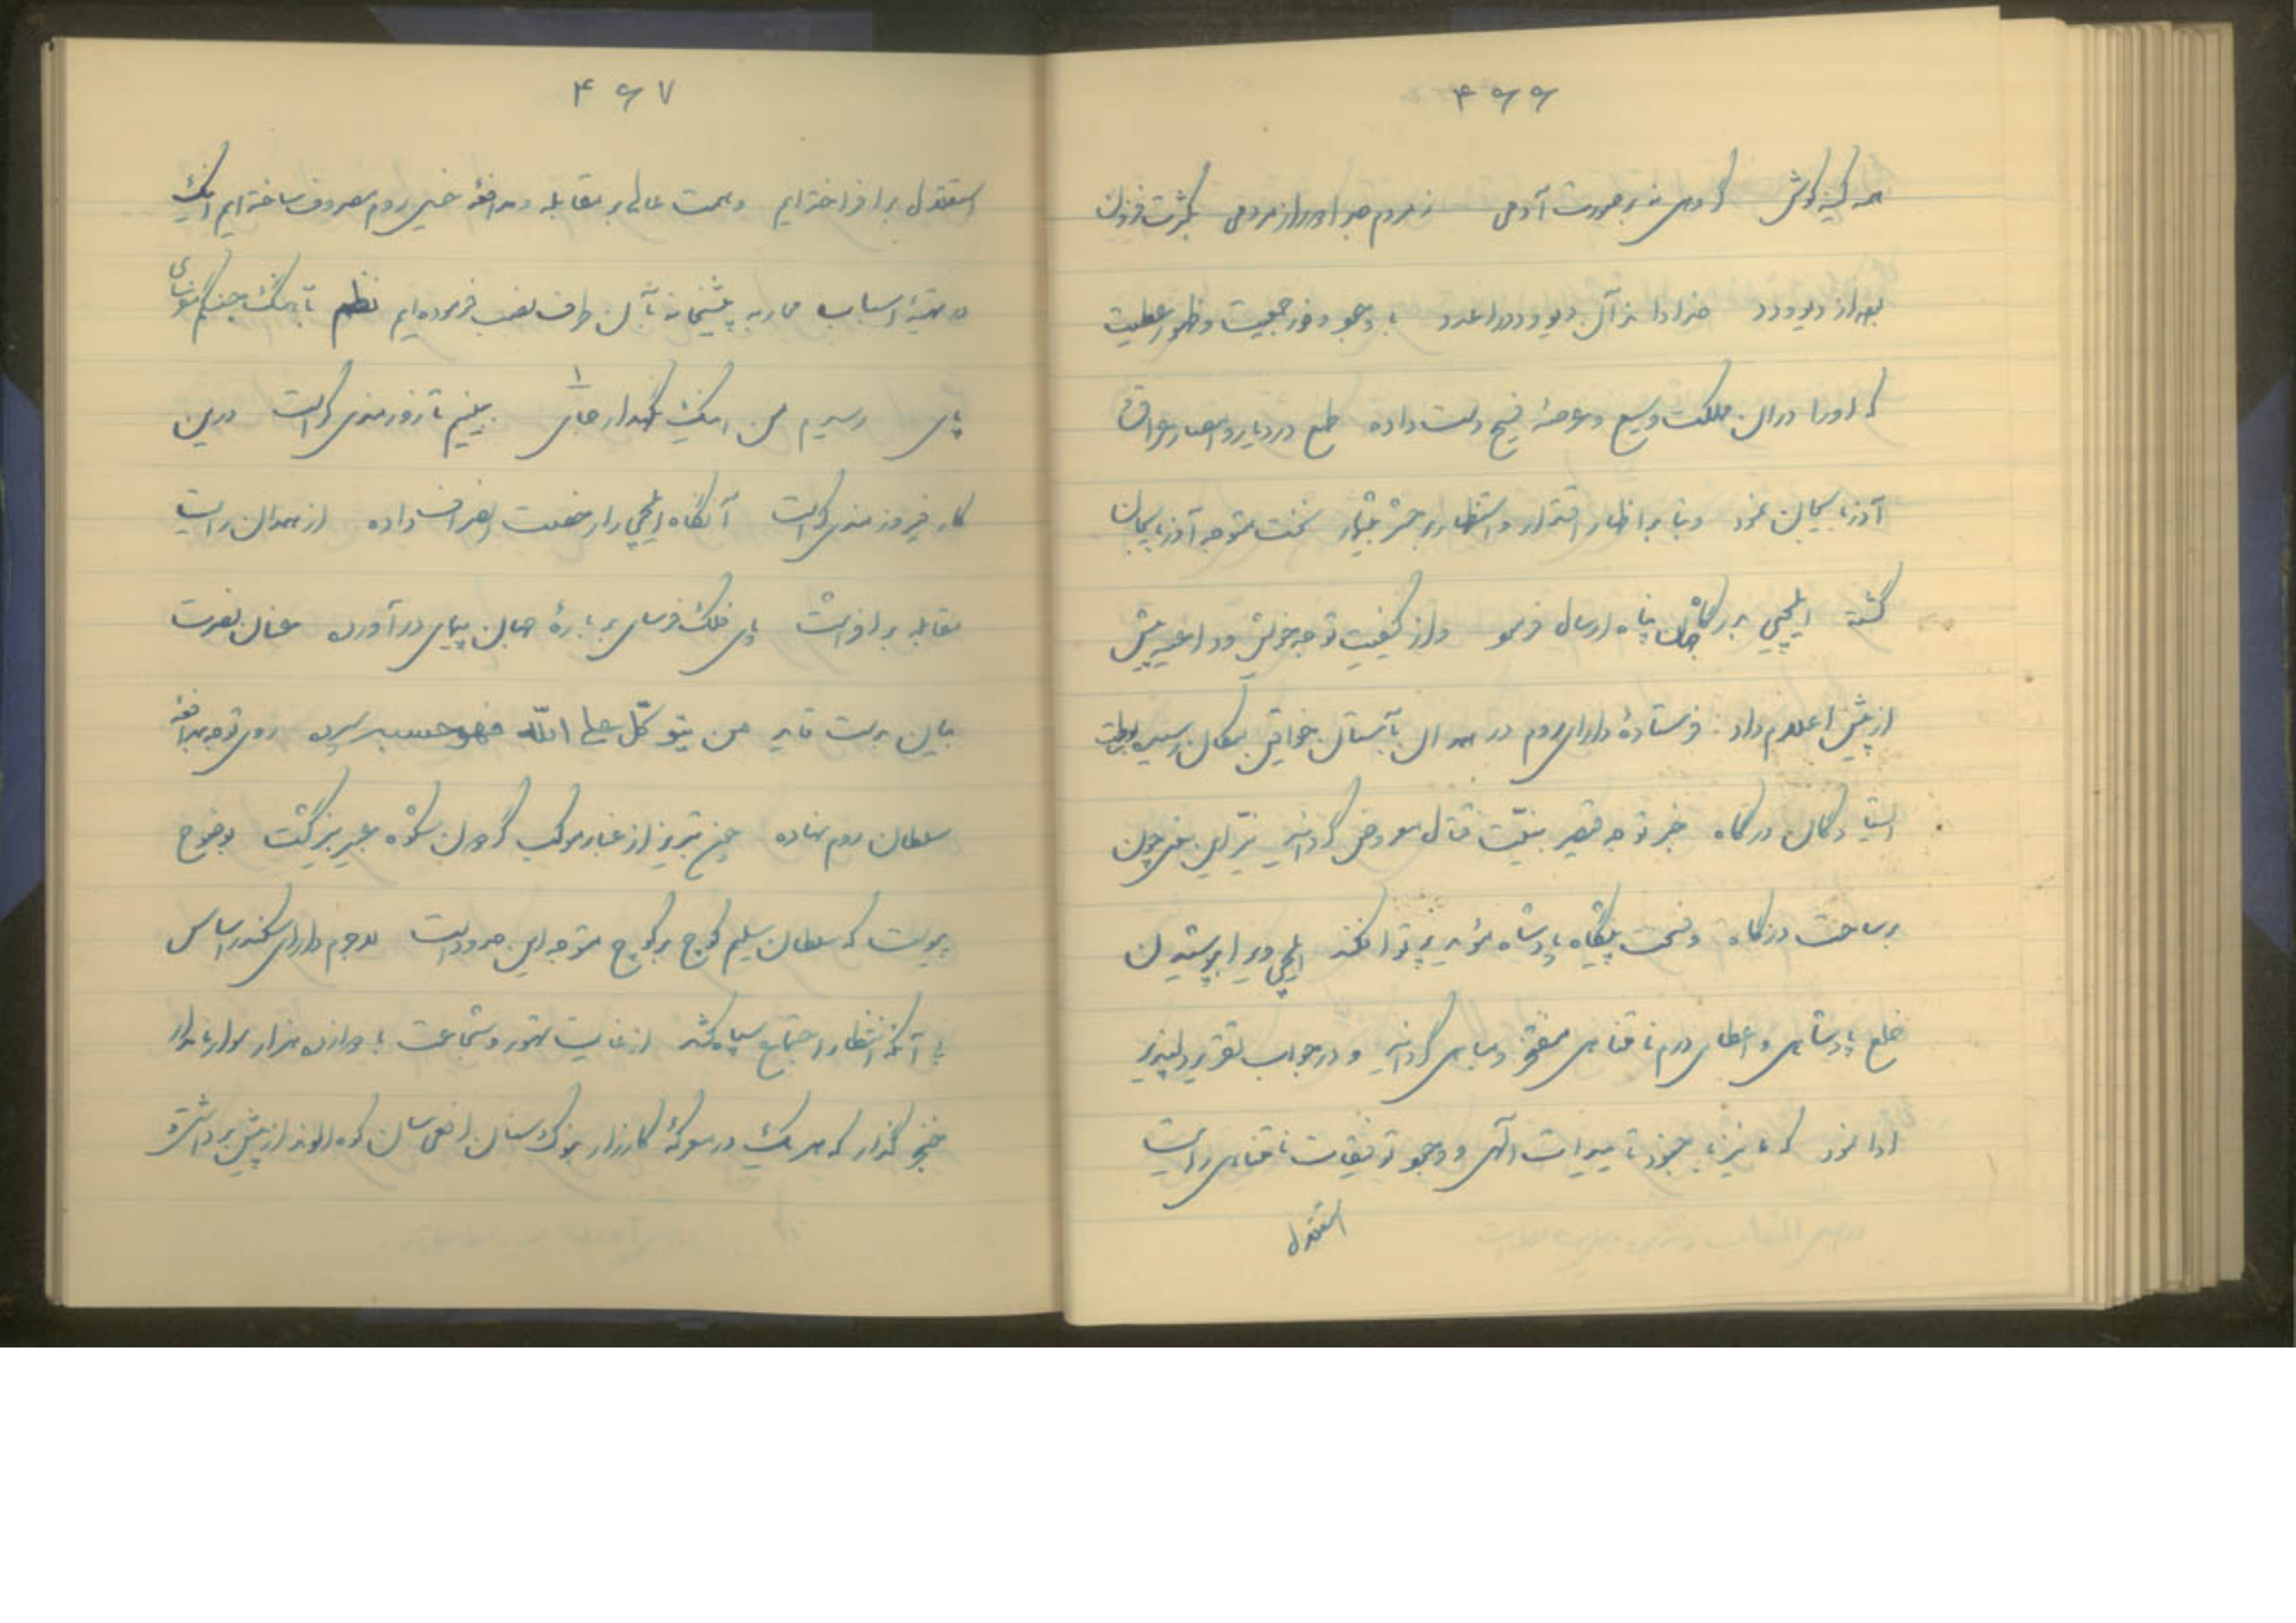 ۴۶۶
همه کینه کوش گروهی نه بر صورت آدمی ز مردم جدا دور از مردمی بکثرت فزون
بود از دیو و دد خدا را از آن دیو و دد را عدد با وجود وفور جمعیت و ظهور عظمت
که او را در آن مملکت وسیع و عرصهٔ فسیح دست داده طمع در دیار و امصار عراق
آذربایجان نمود و بنابر اظهار اقتدار و استظهار بر حشر بیشمار نخست متوجه آذربایجان
گشته ایلچیی بدرگاه جهان پناه ارسال فرمود و از کیفیت توجه خویش و داعیهٔ پیش
از پیش اعلام داد. فرستادهٔ دارای روم در همدان بآستان خواقین مکان رسیده بوساطت
ایستادگان درگاه خبر توجه قیصر بنیّت قتال معروض گردانید نیّر این معنی چون
بر ساحت درگاه و فسحت پیشگاه پادشاه مؤید پرتو افکند ایلچی ویرا بپوشیدن
خلع پادشاهی و اعطای درم نامتناهی مفتخر و مباهی گردانید و در جواب تقریر دلپذیر
ادا نمود که ما نیز با جنود تأییدات الهی و وجود توفیقات نامتناهی رایت
استقلال
۴۶۷
استقلال برافراخته‌ایم و همت عالی بر مقابله و مدافعهٔ خیل روم مصروف ساخته‌ایم اینک
در تهیهٔ اسباب محاربه پیشخانه بآن طرف نصب فرموده‌ایم نظم بآهنگ جنگم تو بنمای
پای رسیدم من اینک نگهدار جای ۱ ببینیم تا زورمندی کراست درین
کار فیروزمندی کراست آنگاه ایلچی را رخصت انصراف داده از همدان رایت
مقابله برافراشت پای فلک فرسای بر بارهٔ جهان پیمای درآورده عنان نصرت
بیان بدست قاید من یتوکّل علی الله فهو حسبه سپرده روی توجه بمدافعهٔ
سلطان روم نهاده چون تبریز از غبار موکب گردون شکوه عبیر بیز گشت بوضوح
پیوست که سلطان سلیم کوچ بر کوچ متوجه این حدود است لاجرم دارای سکندر اساس
بی آنکه انتظار اجتماع سپاه کشد از غایت تهور و شجاعت با دوازده هزار سوار نامدار
خنجر گذار که هر یک در معرکهٔ کارزار بنوک سنان افعی سان کوه الوند از پیش برداشتی و